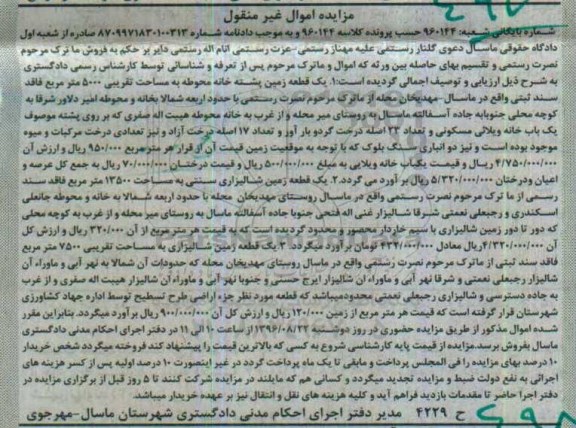 ۴۹۷
مزایده اموال غیر منقول
شماره بایگانی شعبه: ۹۶۰۱۴۴ حسب پرونده کلاسه ۹۶۰۱۴۴ و به موجب دادنامه شماره ۸۷۰۹۹۷۱۸۳۰۱۰۰۳۱۳ صادره از شعبه اول
دادگاه حقوقی ماسال دعوی گلنار رستمی علیه مهناز رستمی-عزت رستمی اتام اله رستمی دایر بر حکم به فروش ما ترک مرحوم
نصرت رستمی و تقسیم بهای حاصله بین ورثه که اموال و ماترک مرحوم پس از تعرفه و شناسائی توسط کارشناس رسمی دادگستری
به شرح ذیل ارزیابی و توصیف اجمالی گردیده است:۱. یک قطعه زمین پشته خانه محوطه به مساحت تقریبی ۵۰۰۰ متر مربع فاقد
سند ثبتی واقع در ماسال-مهدیخان محله از ماترک مرحوم نصرت رستمی با حدود اربعه شمالا بخانه و محوطه امیر دلاور شرقا به
کوچه محلی جنوبابه جاده آسفالته ماسال به روستای میر محله و از غرب به خانه محوطه هیبت اله صفری که بر روی پشته موصوف
یک باب خانه ویلائی مسکونی و تعداد ۲۳ اصله درخت گردو بار آور و تعداد ۱۷ اصله درخت آزاد و نیز تعدادی درخت مرکبات و میوه
موجود بوده است و نیز دو انباری سنگ بلوک که با توجه به موقعیت زمین قیمت آن از قرار هر مترمربع ۹۵۰/۰۰۰ ریال و ارزش آن
۴/۷۵۰/۰۰۰/۰۰۰ ریال و قیمت یکباب خانه ویلایی به مبلغ ۵۰۰/۰۰۰/۰۰۰ ریال و قیمت درختان ۷۰/۰۰۰/۰۰۰ ریال به جمع کل عرصه و
اعیان ودرختان ۵/۳۲۰/۰۰۰/۰۰۰ ریال بر آورد می گردد.۲. یک قطعه زمین شالیزاری سنتی به مساحت ۱۳۵۰۰ متر مربع فاقد سند
رسمی از ما ترک مرحوم نصرت رستمی واقع در ماسال روستای مهدیخان محله با حدود اربعه شمالا به خانه و محوطه جانعلی
اسکندری و رجبعلی نعمتی شرقا شالیزار غنی اله فتحی جنوبا جاده آسفالته ماسال به روستای میر محله و از غرب به کوچه محلی
که دور تا دور زمین شالیزاری با سیم خاردار محصور و محدود گردیده است که به قیمت هر متر مربع از آن ۳۲۰/۰۰۰ ریال و ارزش کل
آن ۴/۳۲۰/۰۰۰/۰۰۰ریال معادل ۴۳۲/۰۰۰/۰۰۰ تومان برآورد میگردد. ۳ یک قطعه زمین شالیزاری به مساحت تقریبی ۷۵۰۰ متر مربع
فاقد سند ثبتی از ماترک مرحوم نصرت رستمی واقع در ماسال روستای مهدیخان محله که حدودات آن شمالا به نهر آبی و ماوراء آن
شالیزار رجبعلی نعمتی و شرقا نهر آبی و ماوراء آن شالیزار ایرج حسنی و جنوبا نهر آبی و ماوراء آن شالیزار هیبت اله صفری و از غرب
به جاده دسترسی و شالیزاری رجبعلی نعمتی محدودمیباشد که قطعه مورد نظر جزء اراضی طرح تسطیح توسط اداره جهاد کشاورزی
شهرستان قرار گرفته است که قیمت هر متر مربع از زمین ۱۲۰/۰۰۰ ریال و ارزش کل آن ۹۰۰/۰۰۰/۰۰۰ ریال برآورد میگردد. بنابراین مقرر
شده اموال مذکور از طریق مزایده حضوری در روز دوشنبه ۱۳۹۶/۰۸/۲۲از ساعت ۱۰ الی ۱۱ در دفتر اجرای احکام مدنی دادگستری
ماسال بفروش برسد. مزایده از قیمت پایه کارشناسی شروع به کسی که بالاترین قیمت را پیشنهاد کند فروخته میگردد شخص خریدار
۱۰ درصد بهای مزایده را فی المجلس پرداخت و مابقی تا یک ماه پرداخت گردد در غیر اینصورت ۱۰ درصد اولیه پس از کسر هزینه های
اجرائی به نفع دولت ضبط و مزایده تجدید میگردد و کسانی هم که مایلند در مزایده شرکت کنند تا ۵ روز قبل از برگزاری مزایده در
دفتر اجرا حاضر تا مقدمات بازدید فراهم آید و کلیه هزینه های نقل و انتقال نیز بر عهده خریدار میباشد.
ح ۴۲۲۹ مدیر دفتر اجرای احکام مدنی دادگستری شهرستان ماسال-مهرجوی